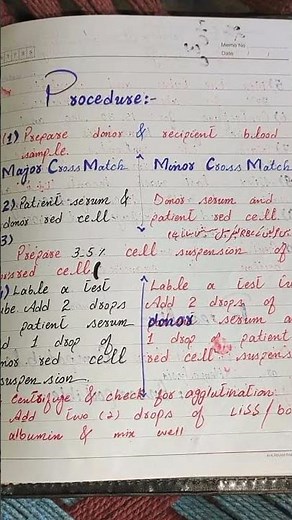 Memo No
Date
Procedure:-
(1) Prepare donor & recipient blood
sample.
Major Cross Match
Minor Cross Match
2) Patient serum &
donor red cell
Donor serum and
patient red cell
3)
Prepare 3-5% cell suspension of
red cell
Lable a test
Add 2 drops
patient serum
1 drop of
red cell
suspension
Lable a test
Add 2 drops of
donor serum
1 drop patient
red cell suspens
Centrifuge & check for agglutination
Add two (2) drops of LISS/bo
albumin & mix well